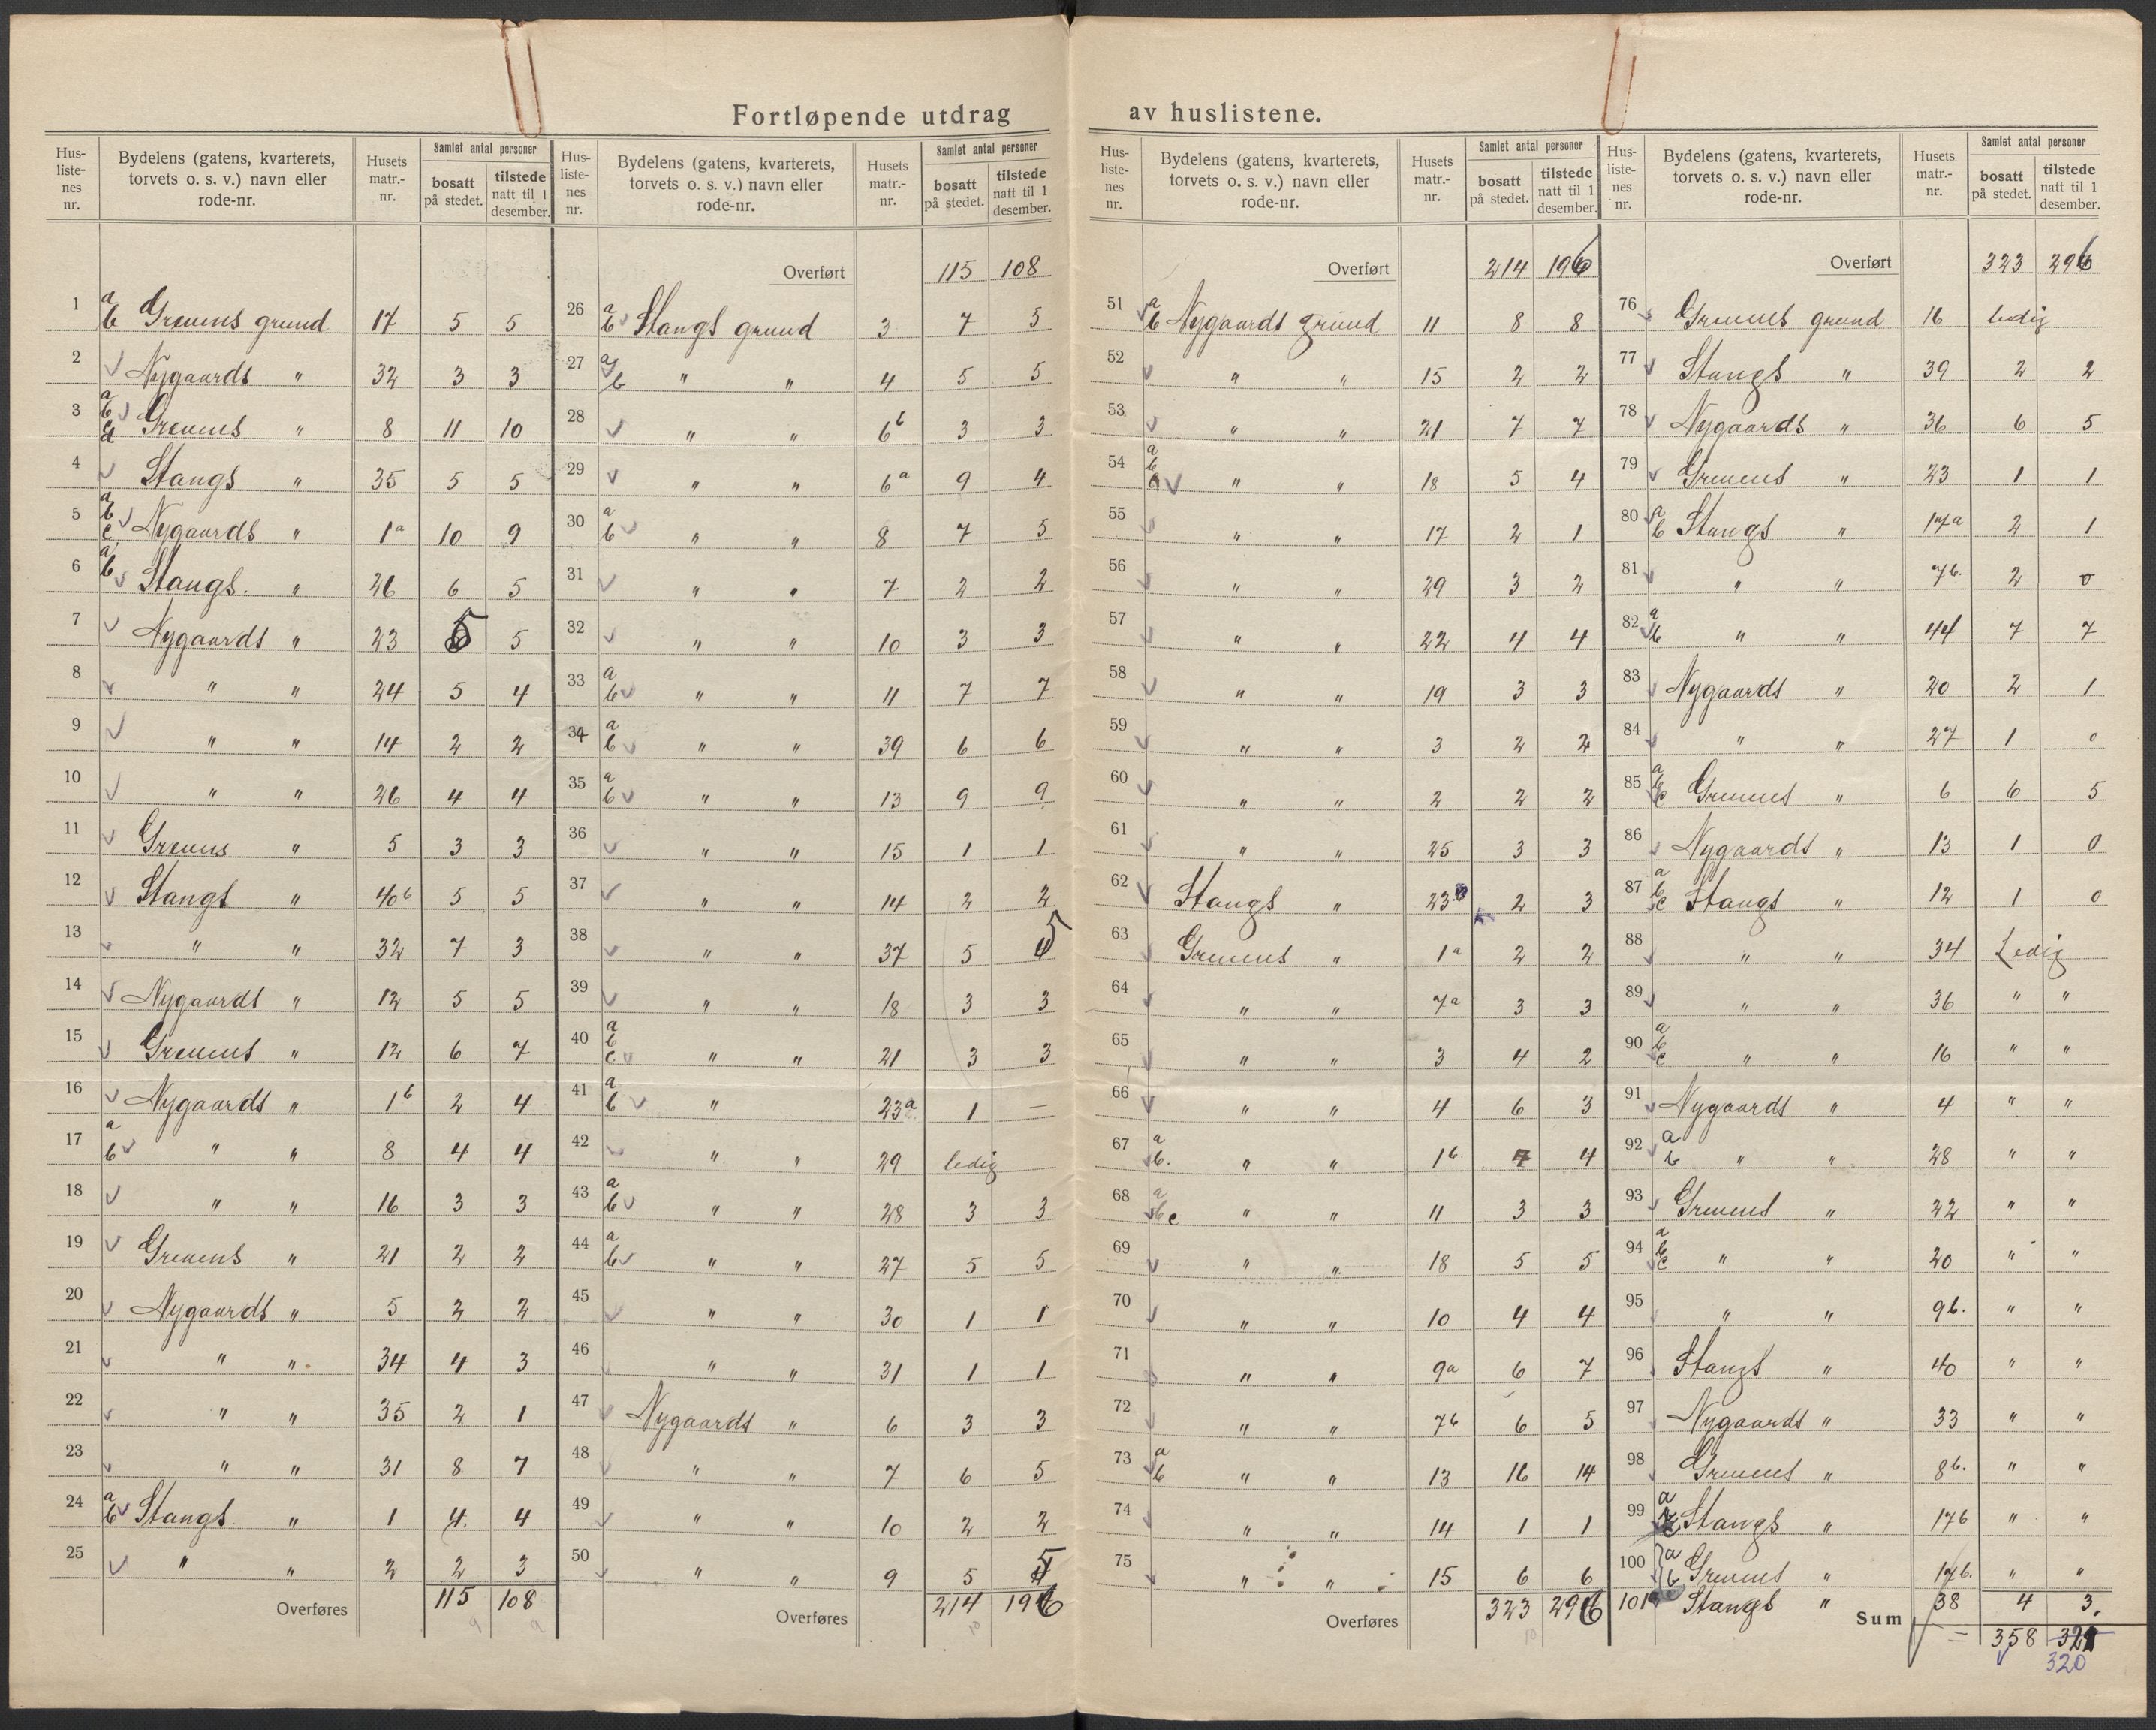 Fortløpende utdrag av huslistene.
Hus-liste-nes nr. | Bydelens (gatens, kvarterets, torvets o. s. v.) navn eller rode-nr. | Husets matr.-nr. | Samlet antal personer bosatt på stedet. | tilstede natt til 1 desember.
1 a b Grevens grund 17 5 5
2 Nygaards " 32 3 3
3 a b c d Grevens " 8 11 10
4 Stangs " 35 5 5
5 a b c Nygaards " 1a 10 9
6 a b Stangs. " 26 6 5
7 Nygaards " 23 5 5
8 " " 24 5 4
9 " " 14 2 2
10 " " 26 4 4
11 Grevens " 5 3 3
12 Stangs " 40b 5 5
13 " " 32 7 3
14 Nygaards " 12 5 5
15 Grevens " 12 6 7
16 Nygaards " 1b 2 4
17 a b " " 8 4 4
18 " " 16 3 3
19 Grevens " 21 2 2
20 Nygaards " 5 2 2
21 " " 34 4 3
22 " " 35 2 1
23 " " 31 8 7
24 a b Stangs " 1 4. 4
25 " " 2 2 3
Overføres 115 108
Hus-liste-nes nr. | Bydelens (gatens, kvarterets, torvets o. s. v.) navn eller rode-nr. | Husets matr.-nr. | Samlet antal personer bosatt på stedet. | tilstede natt til 1 desember.
Overført 115 108
26 a b Stangs grund 3 7 5
27 a b " " 4 5 5
28 " " 6b 3 3
29 " " 6a 9 4
30 a b " " 8 7 5
31 " " 7 2 2
32 " " 10 3 3
33 a b " " 11 7 7
34 a b " " 39 6 6
35 a b " " 13 9 9
36 " " 15 1 1
37 " " 14 2 2
38 " " 37 5 5
39 " " 18 3 3
40 a b c " " 21 3 3
41 a b " 23a 1 —
42 " " 29 ledig
43 a b " " 28 3 3
44 a b " " 27 5 5
45 " " 30 1 1
46 " " 31 1 1
47 Nygaards " 6 3 3
48 " " 7 6 5
49 " " 10 2 2
50 " " 9 5 5
Overføres 214 196
Hus-liste-nes nr. | Bydelens (gatens, kvarterets, torvets o. s. v.) navn eller rode-nr. | Husets matr.-nr. | Samlet antal personer bosatt på stedet. | tilstede natt til 1 desember.
Overført 214 196
51 a b Nygaards grund 11 8 8
52 " " 15 2 2
53 " " 21 7 7
54 a b " " 18 5 4
55 " " 17 2 1
56 " " 29 3 2
57 " " 22 4 4
58 " " 19 3 3
59 " " 3 2 2
60 " " 2 2 2
61 " " 25 3 3
62 Stangs " 23 2 3
63 Grevens " 1a 2 2
64 " " 7a 3 3
65 " " 3 4 2
66 " " 4 6 3
67 a b. " " 1b. 4 4
68 a b c " " 11 3 3
69 " " 18 5 5
70 " " 10 4 4
71 " " 9a 6 7
72 " " 7b 6 5
73 a b " " 13 16 14
74 " " 14 1 1
75 " " 15 6 6
Overføres 323 296
Hus-liste-nes nr. | Bydelens (gatens, kvarterets, torvets o. s. v.) navn eller rode-nr. | Husets matr.-nr. | Samlet antal personer bosatt på stedet. | tilstede natt til 1 desember.
Overført 323 296
76 Grevens grund 16 ledig
77 Stangs " 39 2 2
78 Nygaards " 36 6 5
79 Grevens " 23 1 1
80 a b Stangs " 17a 2 1
81 " " 7b. 2 0
82 a b " " 44 7 7
83 Nygaards " 20 2 1
84 " " 27 1 0
85 a b c Grevens " 6 6 5
86 Nygaards " 13 1 0
87 a b c Stangs " 12 1 0
88 " " 34 Ledig
89 " " 36 " "
90 a b c " " 16 " "
91 Nygaards " 4 " "
92 a b " " 28 " "
93 Grevens " 22 " "
94 a b c " " 20 " "
95 " " 9b. " "
96 Stangs " 40 " "
97 Nygaards " 33 " "
98 Grevens " 8b. " "
99 a Stangs " 17b " "
100 a b Grevens " 17b. " "
101 Stangs " 38 4 3.
Sum 358 321
320